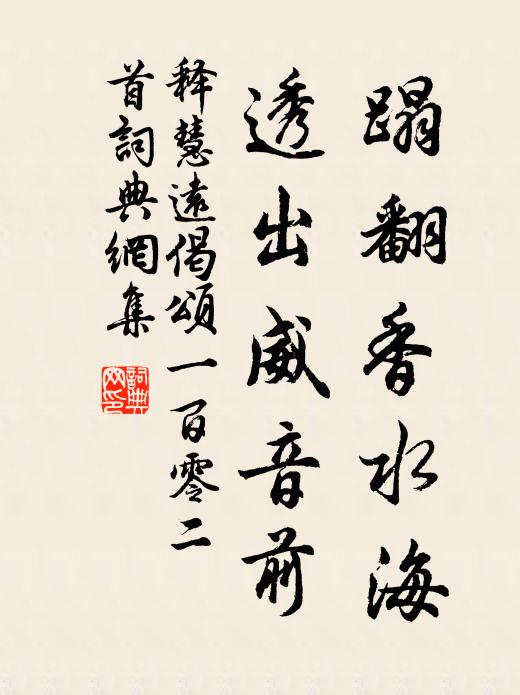 蹋翻香水海
透出威音前
释慧遠偈頌一百零二
首詞典網集
詞典网印